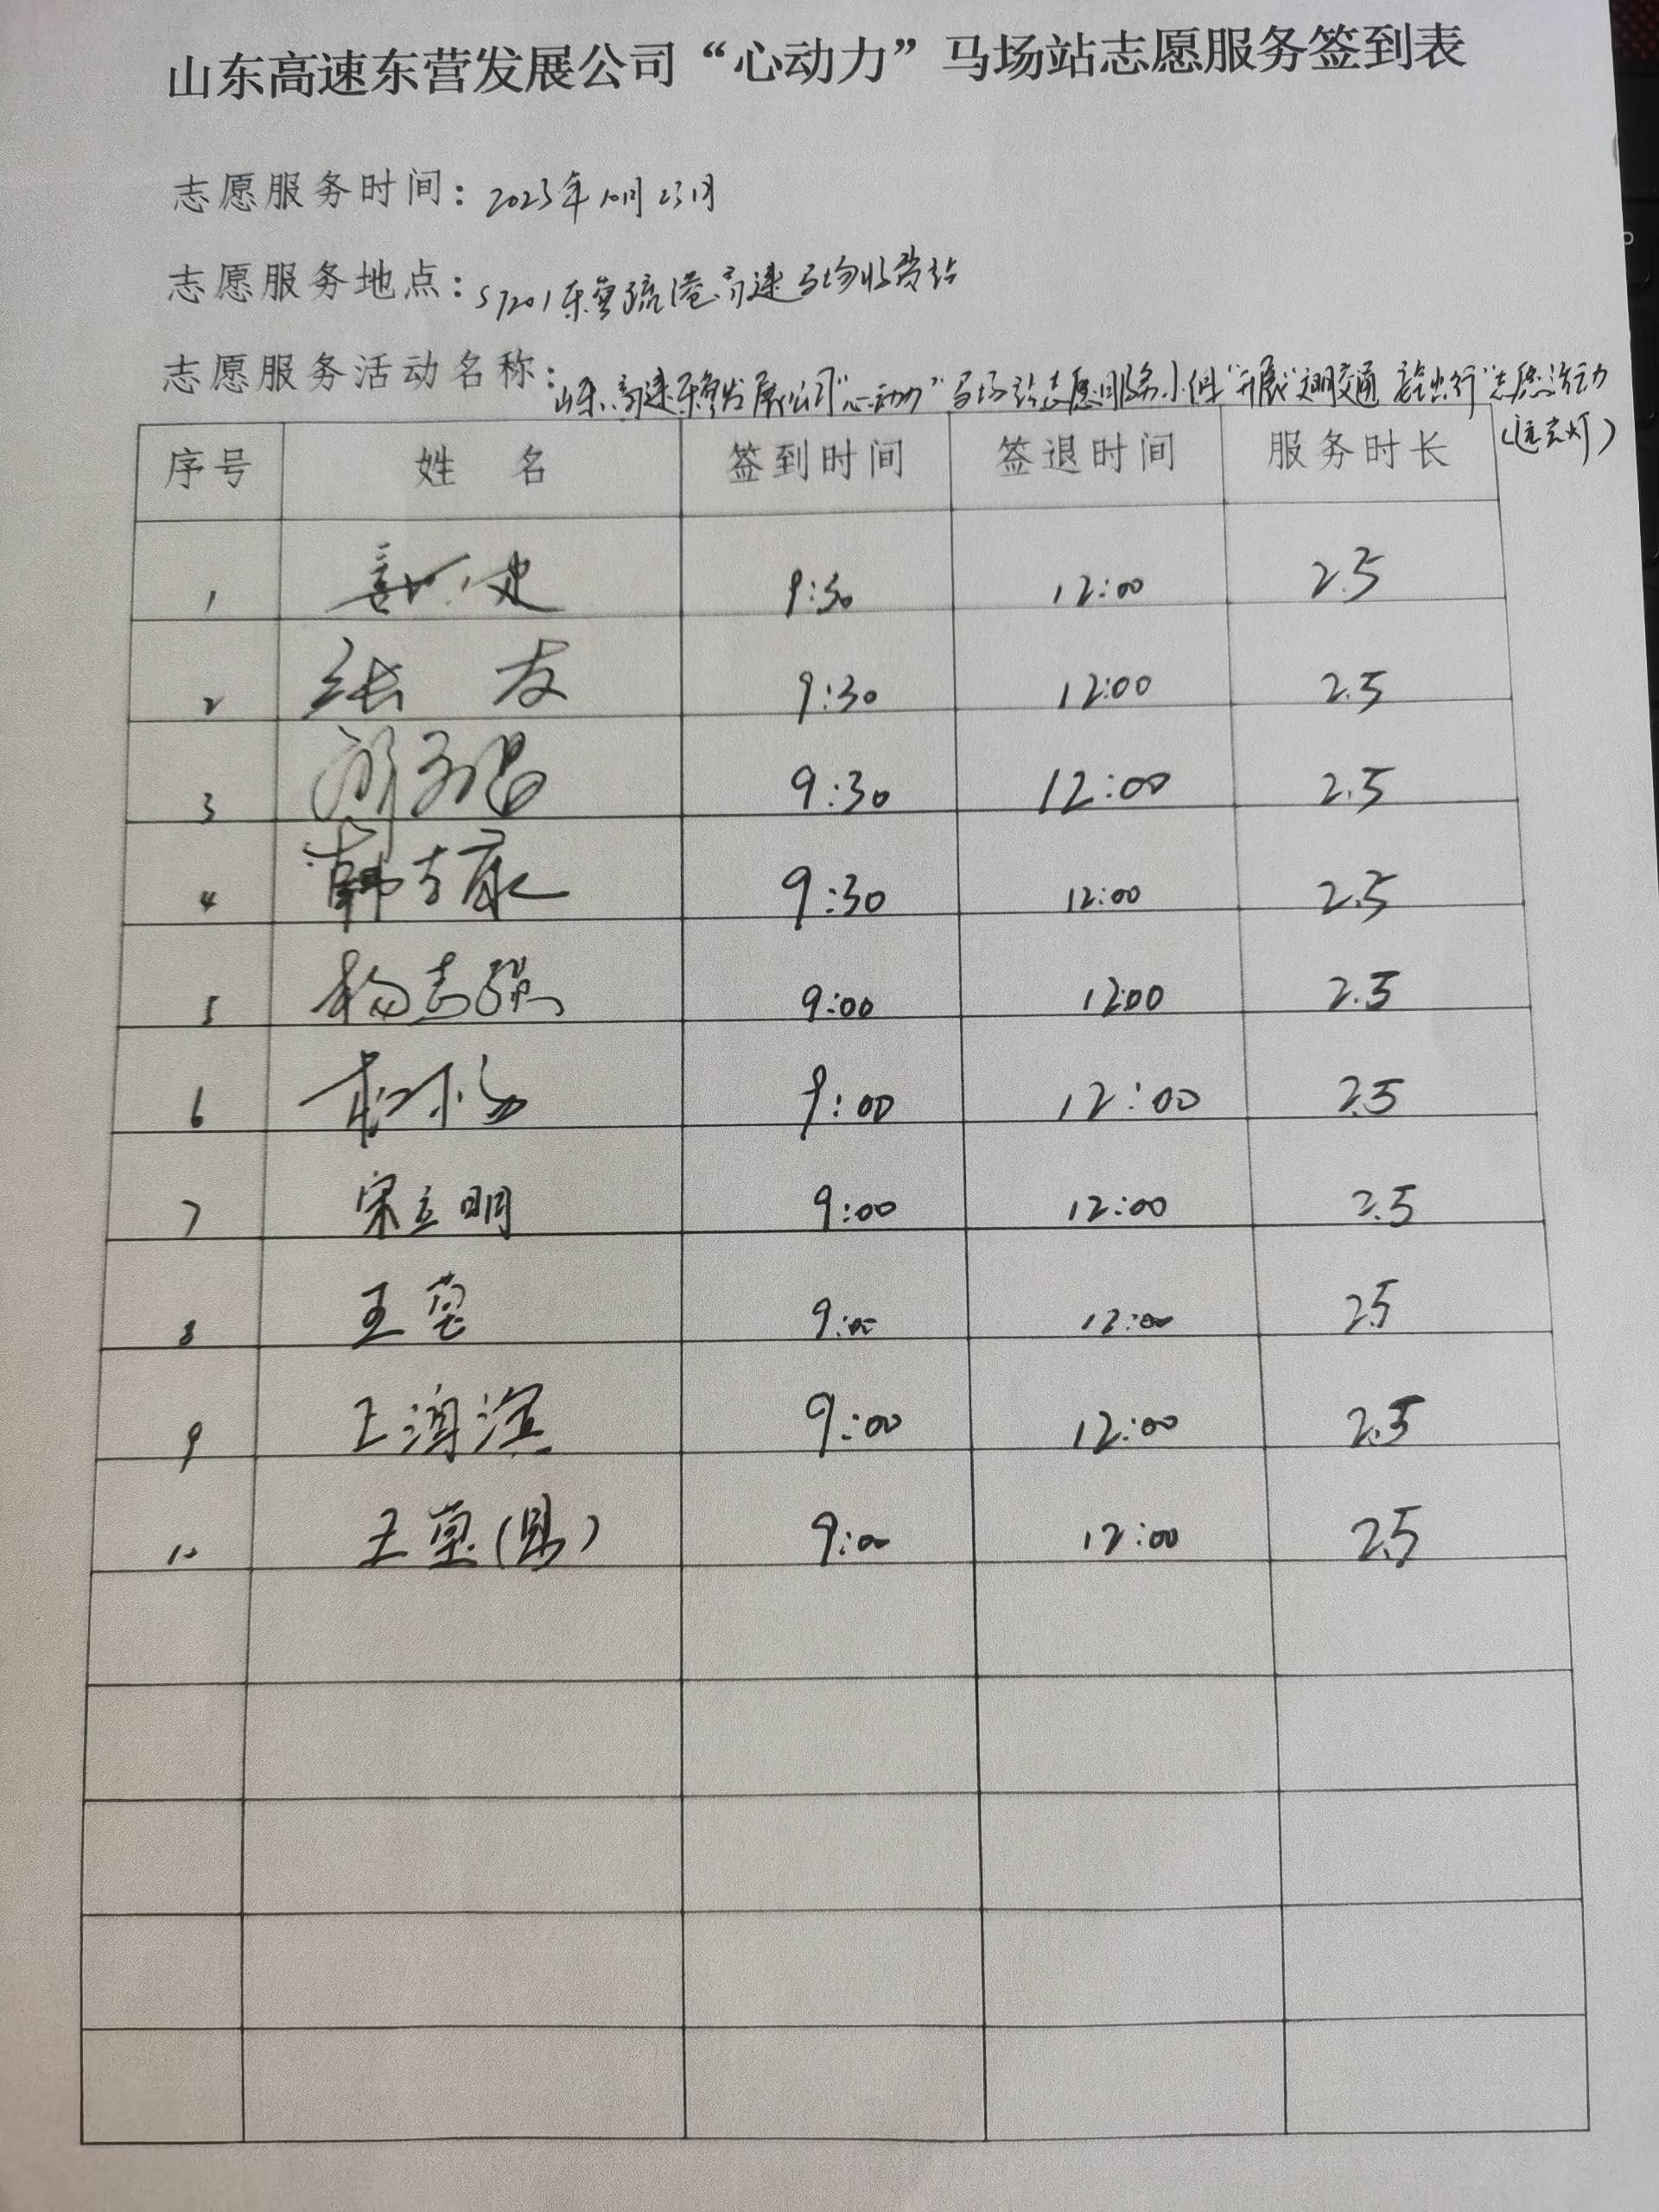 山东高速东营发展公司“心动力”马场站志愿服务签到表
志愿服务时间：2023年10月23日
志愿服务地点：S7201东营疏港高速马场收费站
志愿服务活动名称：山东高速东营发展公司“心动力”马场站志愿服务小组“开展“文明交通 安全出行”志愿活动
序号 姓 名 签到时间 签退时间 服务时长
1 9:30 12:00 2.5
2 张 友 9:30 12:00 2.5
3 9:30 12:00 2.5
4 韩 9:30 12:00 2.5
5 杨志强 9:00 12:00 2.5
6 9:00 12:00 2.5
7 宋立明 9:00 12:00 2.5
8 王莹 9:00 12:00 2.5
9 王海滨 9:00 12:00 2.5
10 王莹 9:00 12:00 2.5